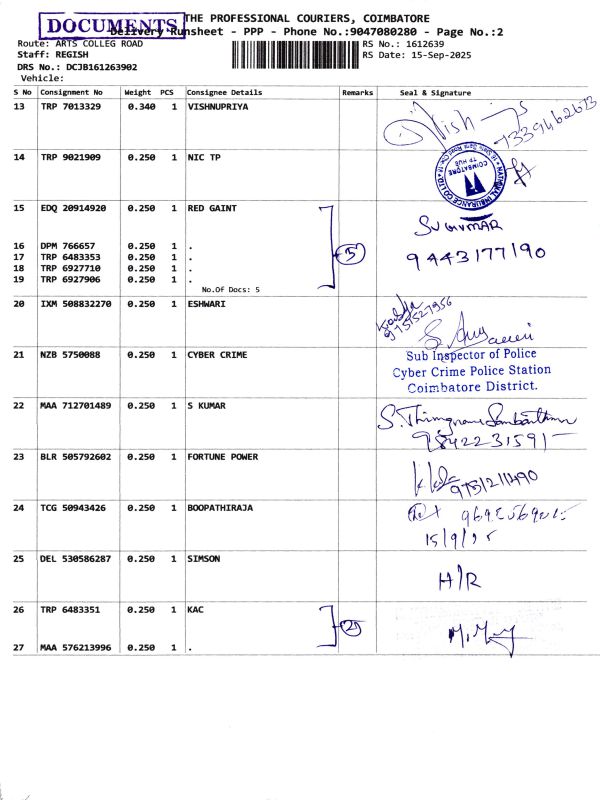 DOCUMENTS
THE PROFESSIONAL COURIERS, COIMBATORE
Delivery Runsheet - PPP - Phone No.:9047080280 - Page No.:2
Route: ARTS COLLEG ROAD
RS No.: 1612639
Staff: REGISH
RS Date: 15-Sep-2025
DRS No.: DCJB161263902
Vehicle:
S No Consignment No Weight PCS Consignee Details Remarks Seal & Signature
13 TRP 7013329 0.340 1 VISHNUPRIYA
7339462673
14 TRP 9021909 0.250 1 NIC TP
COIMBATORE
TP HUB
15 EDQ 20914920 0.250 1 RED GAINT
SUGUMAR
16 DPM 766657 0.250 1 .
5
9443177190
17 TRP 6483353 0.250 1 .
18 TRP 6927710 0.250 1 .
19 TRP 6927906 0.250 1 .
No.Of Docs: 5
20 IXM 508832270 0.250 1 ESHWARI
9751527956
21 NZB 5750088 0.250 1 CYBER CRIME
Sub Inspector of Police
Cyber Crime Police Station
Coimbatore District.
22 MAA 712701489 0.250 1 S KUMAR
9842231591
23 BLR 505792602 0.250 1 FORTUNE POWER
24 TCG 50943426 0.250 1 BOOPATHIRAJA
15/9/25
25 DEL 530586287 0.250 1 SIMSON
H/R
26 TRP 6483351 0.250 1 KAC
2
27 MAA 576213996 0.250 1 .